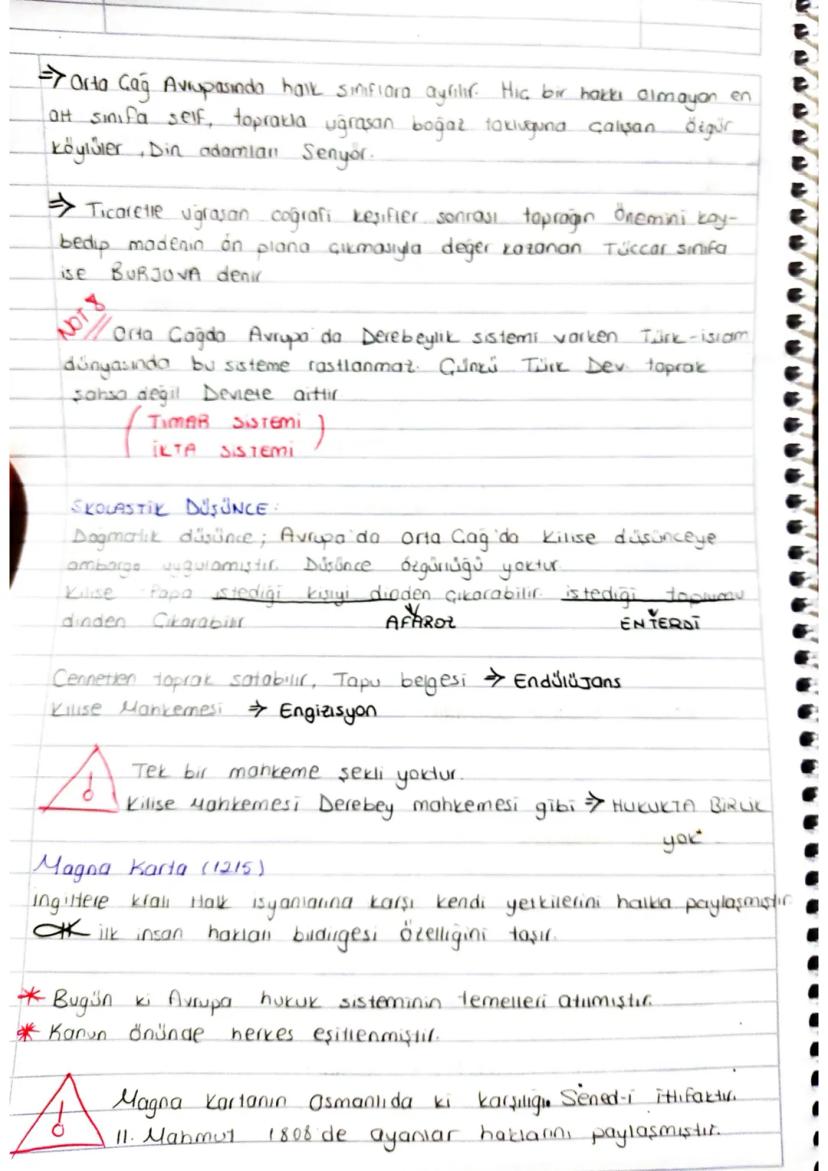 ⇒ Orta Çağ Avrupasında halk sınıflara ayrılır. Hiç bir hakkı olmayan en
alt sınıfa serf, toprakla uğraşan boğaz tokluğuna çalışan özgür
köylüler, Din adamları Senyör.
⇒ Ticaretle uğraşan coğrafi keşifler sonrası toprağın önemini kay-
bedip madenin ön plana çıkmasıyla değer kazanan Tüccar sınıfa
ise BURJOVA denir
NOT 8 // Orta Çağda Avrupa'da Derebeylik sistemi varken Türk-islam
dünyasında bu sisteme rastlanmaz. Çünkü Türk Dev. toprak
şahsa değil Devlete aittir
(TIMAR SİSTEMİ)
(İKTA SİSTEMİ)
SKOLASTİK DÜŞÜNCE:
Dogmatik düşünce; Avrupa'da Orta Çağ'da Kilise düşünceye
ambargo uygulamıştır. Düşünce özgürlüğü yoktur.
Kilise Papa istediği kişiyi dinden çıkarabilir. istediği toplumu
dinden Çıkarabilir AFAROZ ENTERDİ
Cennetten toprak satabilir, Tapu belgesi ⇒ Endülüjans
Kilise Mahkemesi ⇒ Engizisyon
! Tek bir mahkeme şekli yoktur.
Kilise Mahkemesi Derebey mahkemesi gibi ⇒ HUKUKTA BİRLİK
yok
Magna Karta (1215)
ingiltere kralı Halk isyanlarına karşı kendi yetkilerini halkla paylaşmıştır.
ilk insan hakları bildirgesi Özelliğini taşır.
* Bugün ki Avrupa hukuk sisteminin temelleri atılmıştır.
* Kanun önünde herkes eşitlenmiştir.
! Magna Kartanın Osmanlıda ki karşılığı Sened-i ittifaktır.
II. Mahmut 1808'de ayanlar haklarını paylaşmıştır.